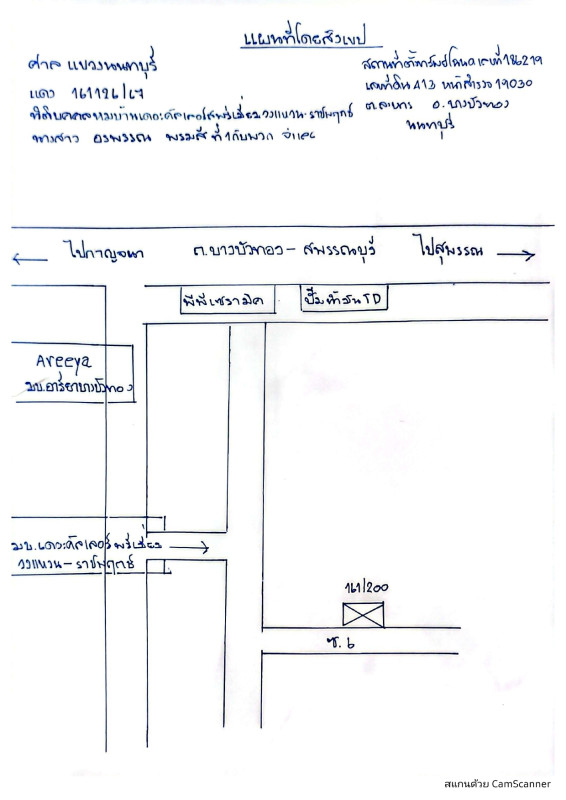 แผนที่โดยสังเขป
ศาล แขวงนนทบุรี
แดง 161126/67
นิติบุคคลหมู่บ้านเดอะคัลเลอร์สพรีเมี่ยวงแหวน-ราชพฤกษ์
นางสาว อรพรรณ พรมสี ที่ 1 กับพวก จำเลย
สถานที่ตั้งทรัพย์โฉนดเลขที่ 186219
เลขที่ดิน 413 หน้าสำรวจ 19030
ต.ละหาร อ.บางบัวทอง
นนทบุรี
ไปกาญจนา ถ.บางบัวทอง - สุพรรณบุรี ไปสุพรรณ
พีพีเซรามิค
ปั๊มน้ำมัน TD
Areeya
มบ.อารียาบางบัวทอง
มบ.เดอะคัลเลอร์พรีเมี่ยม
วงแหวน-ราชพฤกษ์
161/200
ซ. 6
สแกนด้วย CamScanner